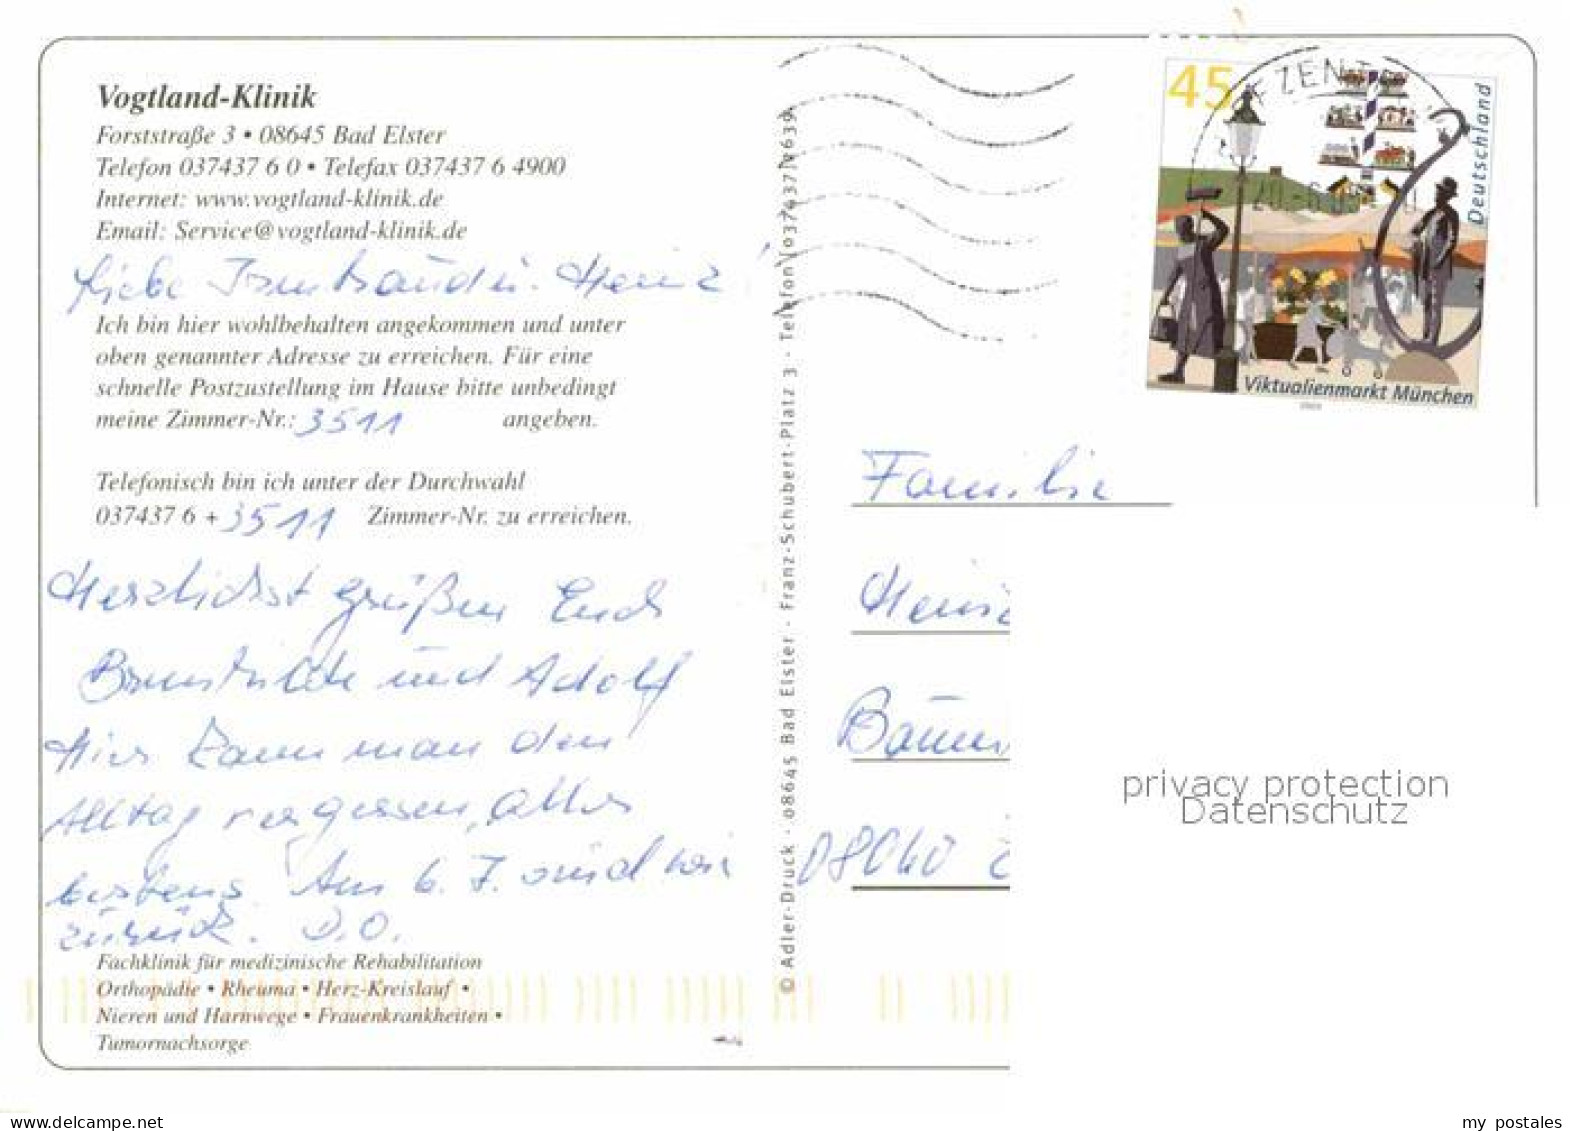 Vogtland-Klinik
Forststraße 3 • 08645 Bad Elster
Telefon 037437 6 0 • Telefax 037437 6 4900
Internet: www.vogtland-klinik.de
Email: Service@vogtland-klinik.de
Liebe Irmtraud u. Heinz!
Ich bin hier wohlbehalten angekommen und unter
oben genannter Adresse zu erreichen. Für eine
schnelle Postzustellung im Hause bitte unbedingt
meine Zimmer-Nr.: 3511 angeben.
Telefonisch bin ich unter der Durchwahl
037437 6 + 3511 Zimmer-Nr. zu erreichen.
Herzlichst grüßen Euch
Brunhilde und Adolf
Hier kann man den
Alltag vergessen, alles
bestens. Am 6. 7. sind wir
zurück. D.O.
Fachklinik für medizinische Rehabilitation
Orthopädie • Rheuma • Herz-Kreislauf •
Nieren und Harnwege • Frauenkrankheiten •
Tumornachsorge
© Adler-Druck · 08645 Bad Elster · Franz-Schubert-Platz 3 · Telefon (037437)2639
45
Deutschland
Viktualienmarkt München
Familie
08060
privacy protection
Datenschutz
my postales